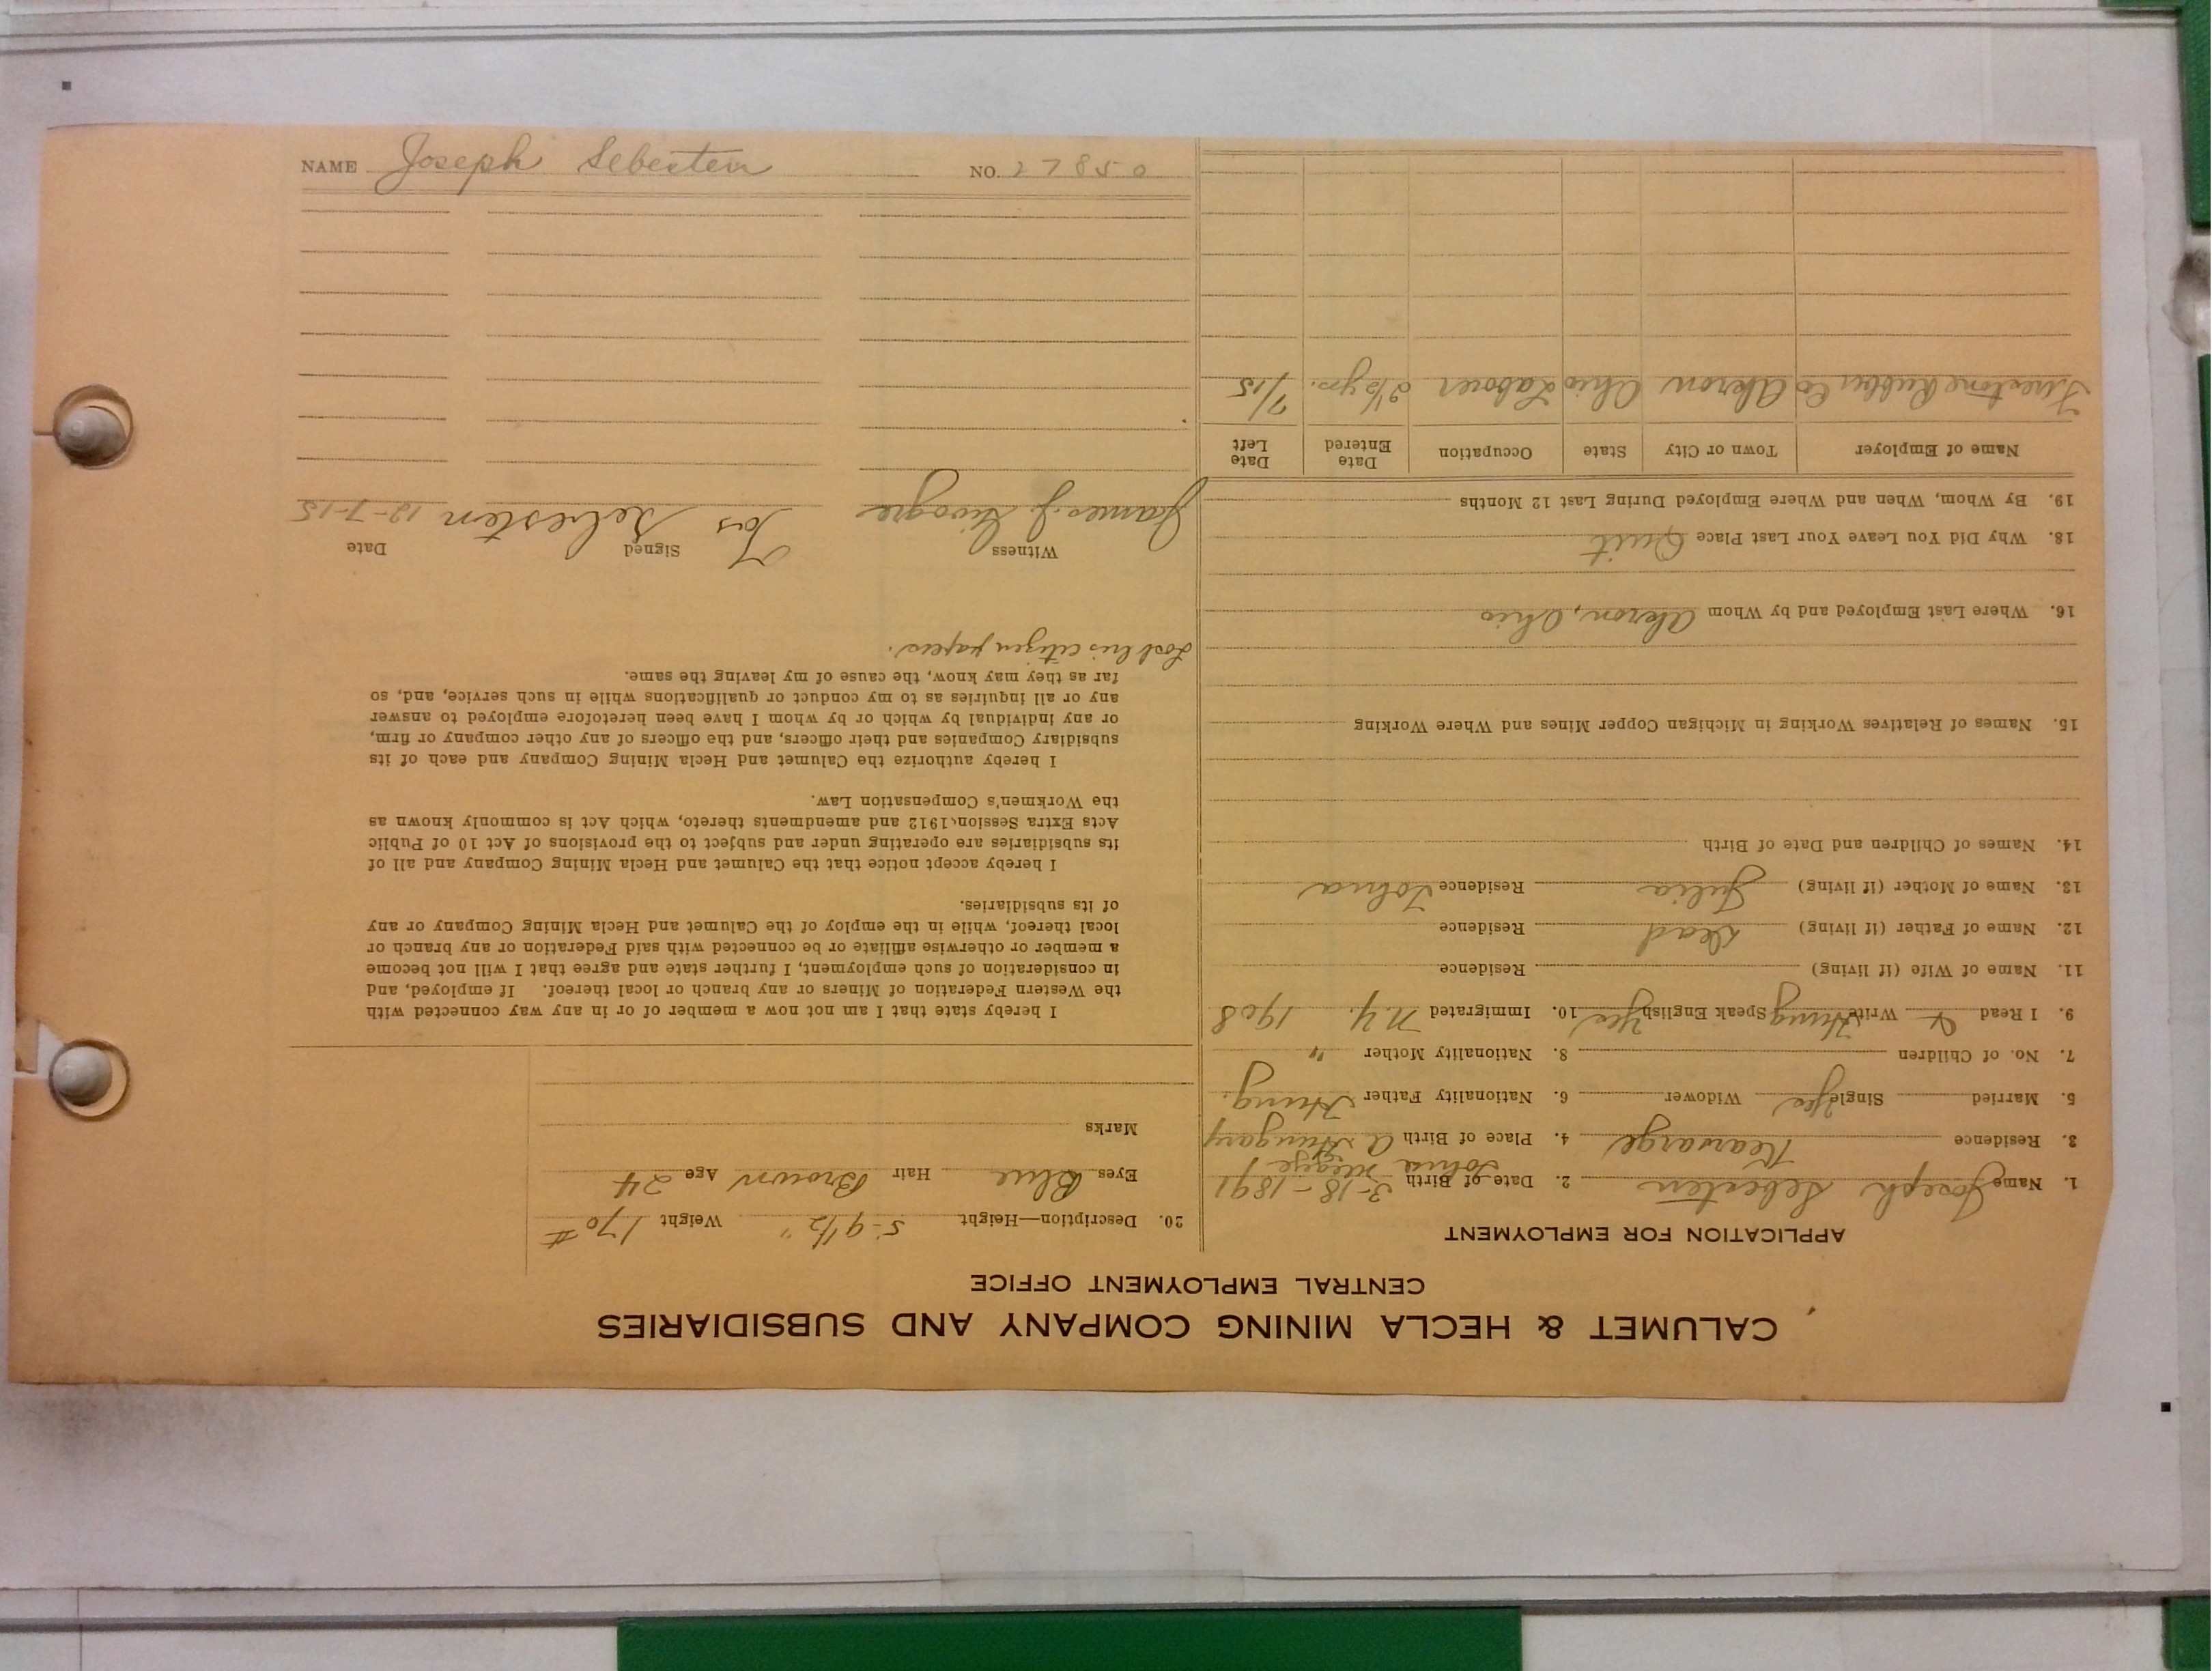 CALUMET & HECLA MINING COMPANY AND SUBSIDIARIES
CENTRAL EMPLOYMENT OFFICE
APPLICATION FOR EMPLOYMENT
1. Name Joseph Sebesten 2. Date of Birth 3-18-1891
Tolna Megye
3. Residence Kearsarge 4. Place of Birth A Hungary
5. Married Single Yes Widower 6. Nationality Father Hung.
7. No. of Children 8. Nationality Mother "
9. I Read & Write Hung Speak English Yes 10. Immigrated N.Y. 1908
11. Name of Wife (if living) Residence
12. Name of Father (if living) Dead Residence
13. Name of Mother (if living) Julia Residence Tolna
14. Names of Children and Date of Birth
15. Names of Relatives Working in Michigan Copper Mines and Where Working
16. Where Last Employed and by Whom Akron, Ohio
18. Why Did You Leave Your Last Place Quit
19. By Whom, When and Where Employed During Last 12 Months
Name of Employer Town or City State Occupation Date Entered Date Left
Firestone Rubber Co Akron Ohio Laborer 2 1/2 yrs. 7/15
20. Description—Height 5-9 1/2" Weight 170 #
Eyes Blue Hair Brown Age 24
Marks
I hereby state that I am not now a member of or in any way connected with
the Western Federation of Miners or any branch or local thereof. If employed, and
in consideration of such employment, I further state and agree that I will not become
a member or otherwise affiliate or be connected with said Federation or any branch or
local thereof, while in the employ of the Calumet and Hecla Mining Company or any
of its subsidiaries.
I hereby accept notice that the Calumet and Hecla Mining Company and all of
its subsidiaries are operating under and subject to the provisions of Act 10 of Public
Acts Extra Session, 1912 and amendments thereto, which Act is commonly known as
the Workmen's Compensation Law.
I hereby authorize the Calumet and Hecla Mining Company and each of its
subsidiary Companies and their officers, and the officers of any other company or firm,
or any individual by which or by whom I have been heretofore employed to answer
any or all inquiries as to my conduct or qualifications while in such service, and, so
far as they may know, the cause of my leaving the same.
Lost his citizen papers.
Witness Signed Date
James J. Jos Sebesten 12-7-15
NAME Joseph Sebesten NO. 27850